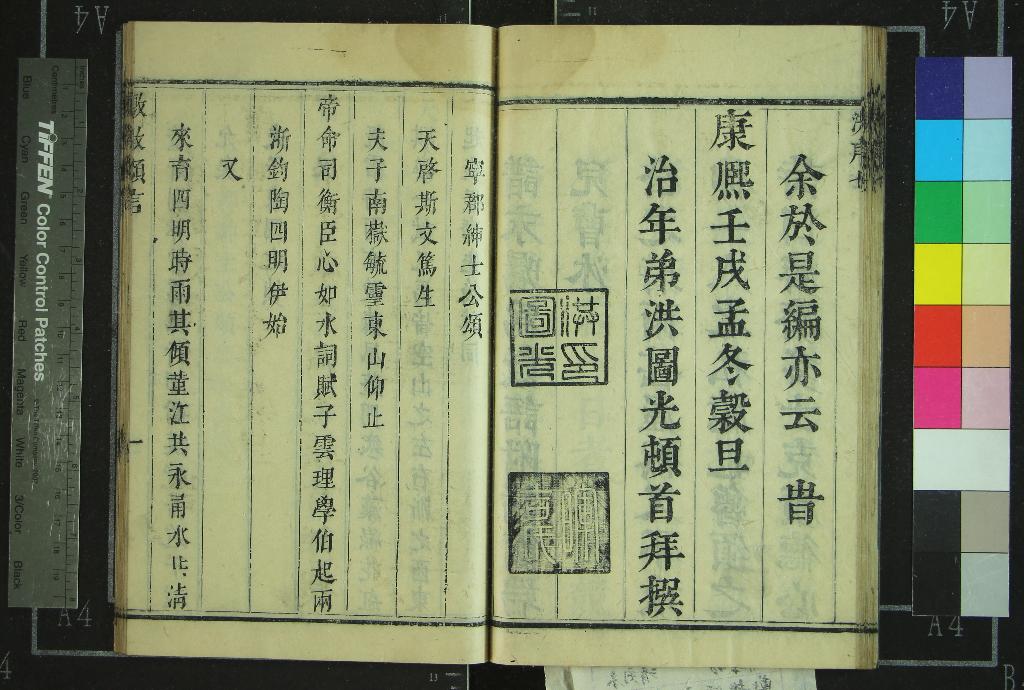 余於是編亦云旹
康熙壬戌孟冬穀旦
治年弟洪圖光頓首拜撰
洪圖光印
寧郡紳士公頌
天啓斯文篤生
夫子南嶽毓靈東山仰止
帝命司衡臣心如水詞賦子雲理學伯起兩
浙鈞陶四明伊始
又
來育四明時雨其傾菫江共永甬水比清
一
TIFFEN Color Control Patches
Blue Cyan Green Yellow Red Magenta White 3/Color Black
Centimetres
Inches
A4
A4
A4
A4